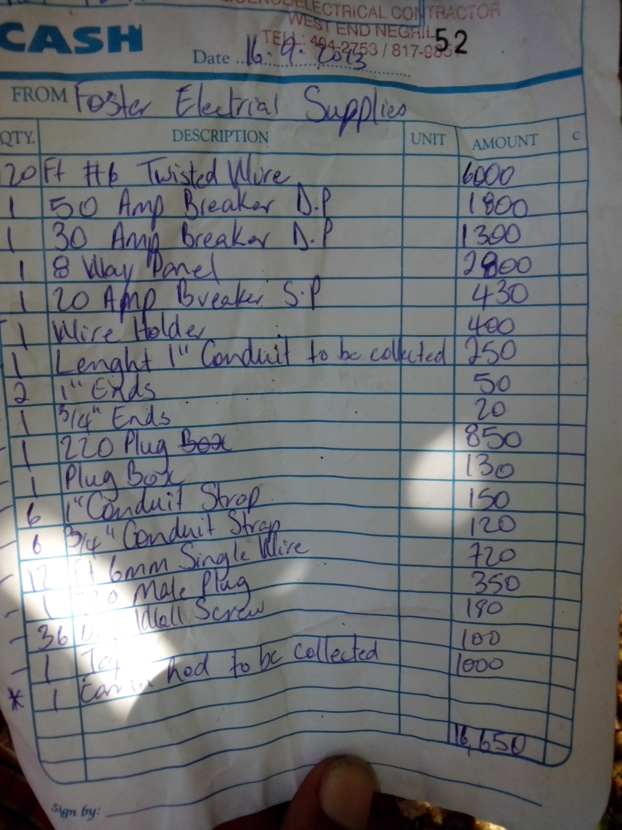 ELECTRICAL CONTRACTOR
WEST END NEGRIL
TEL: 404-2753 / 817-
52
CASH
Date 16. 9. 2013
FROM Foster Electrial Supplies
QTY. DESCRIPTION UNIT AMOUNT C
20 Ft #6 Twisted Wire 6000
1 50 Amp Breaker D.P 1800
1 30 Amp Breaker D.P 1300
1 8 Way Panel 2800
1 20 Amp Breaker S.P 430
1 Wire Holder 400
1 Lenght 1" Conduit to be collected 250
2 1" Ends 50
1 3/4" Ends 20
1 220 Plug Box 850
1 Plug Box 130
6 1" Conduit Strap 150
6 3/4" Conduit Strap 120
12 Ft 6mm Single Wire 720
1 Male Plug 350
36 Wall Screw 180
1 100
* 1 hod to be collected 1000
16,650
Sign by: